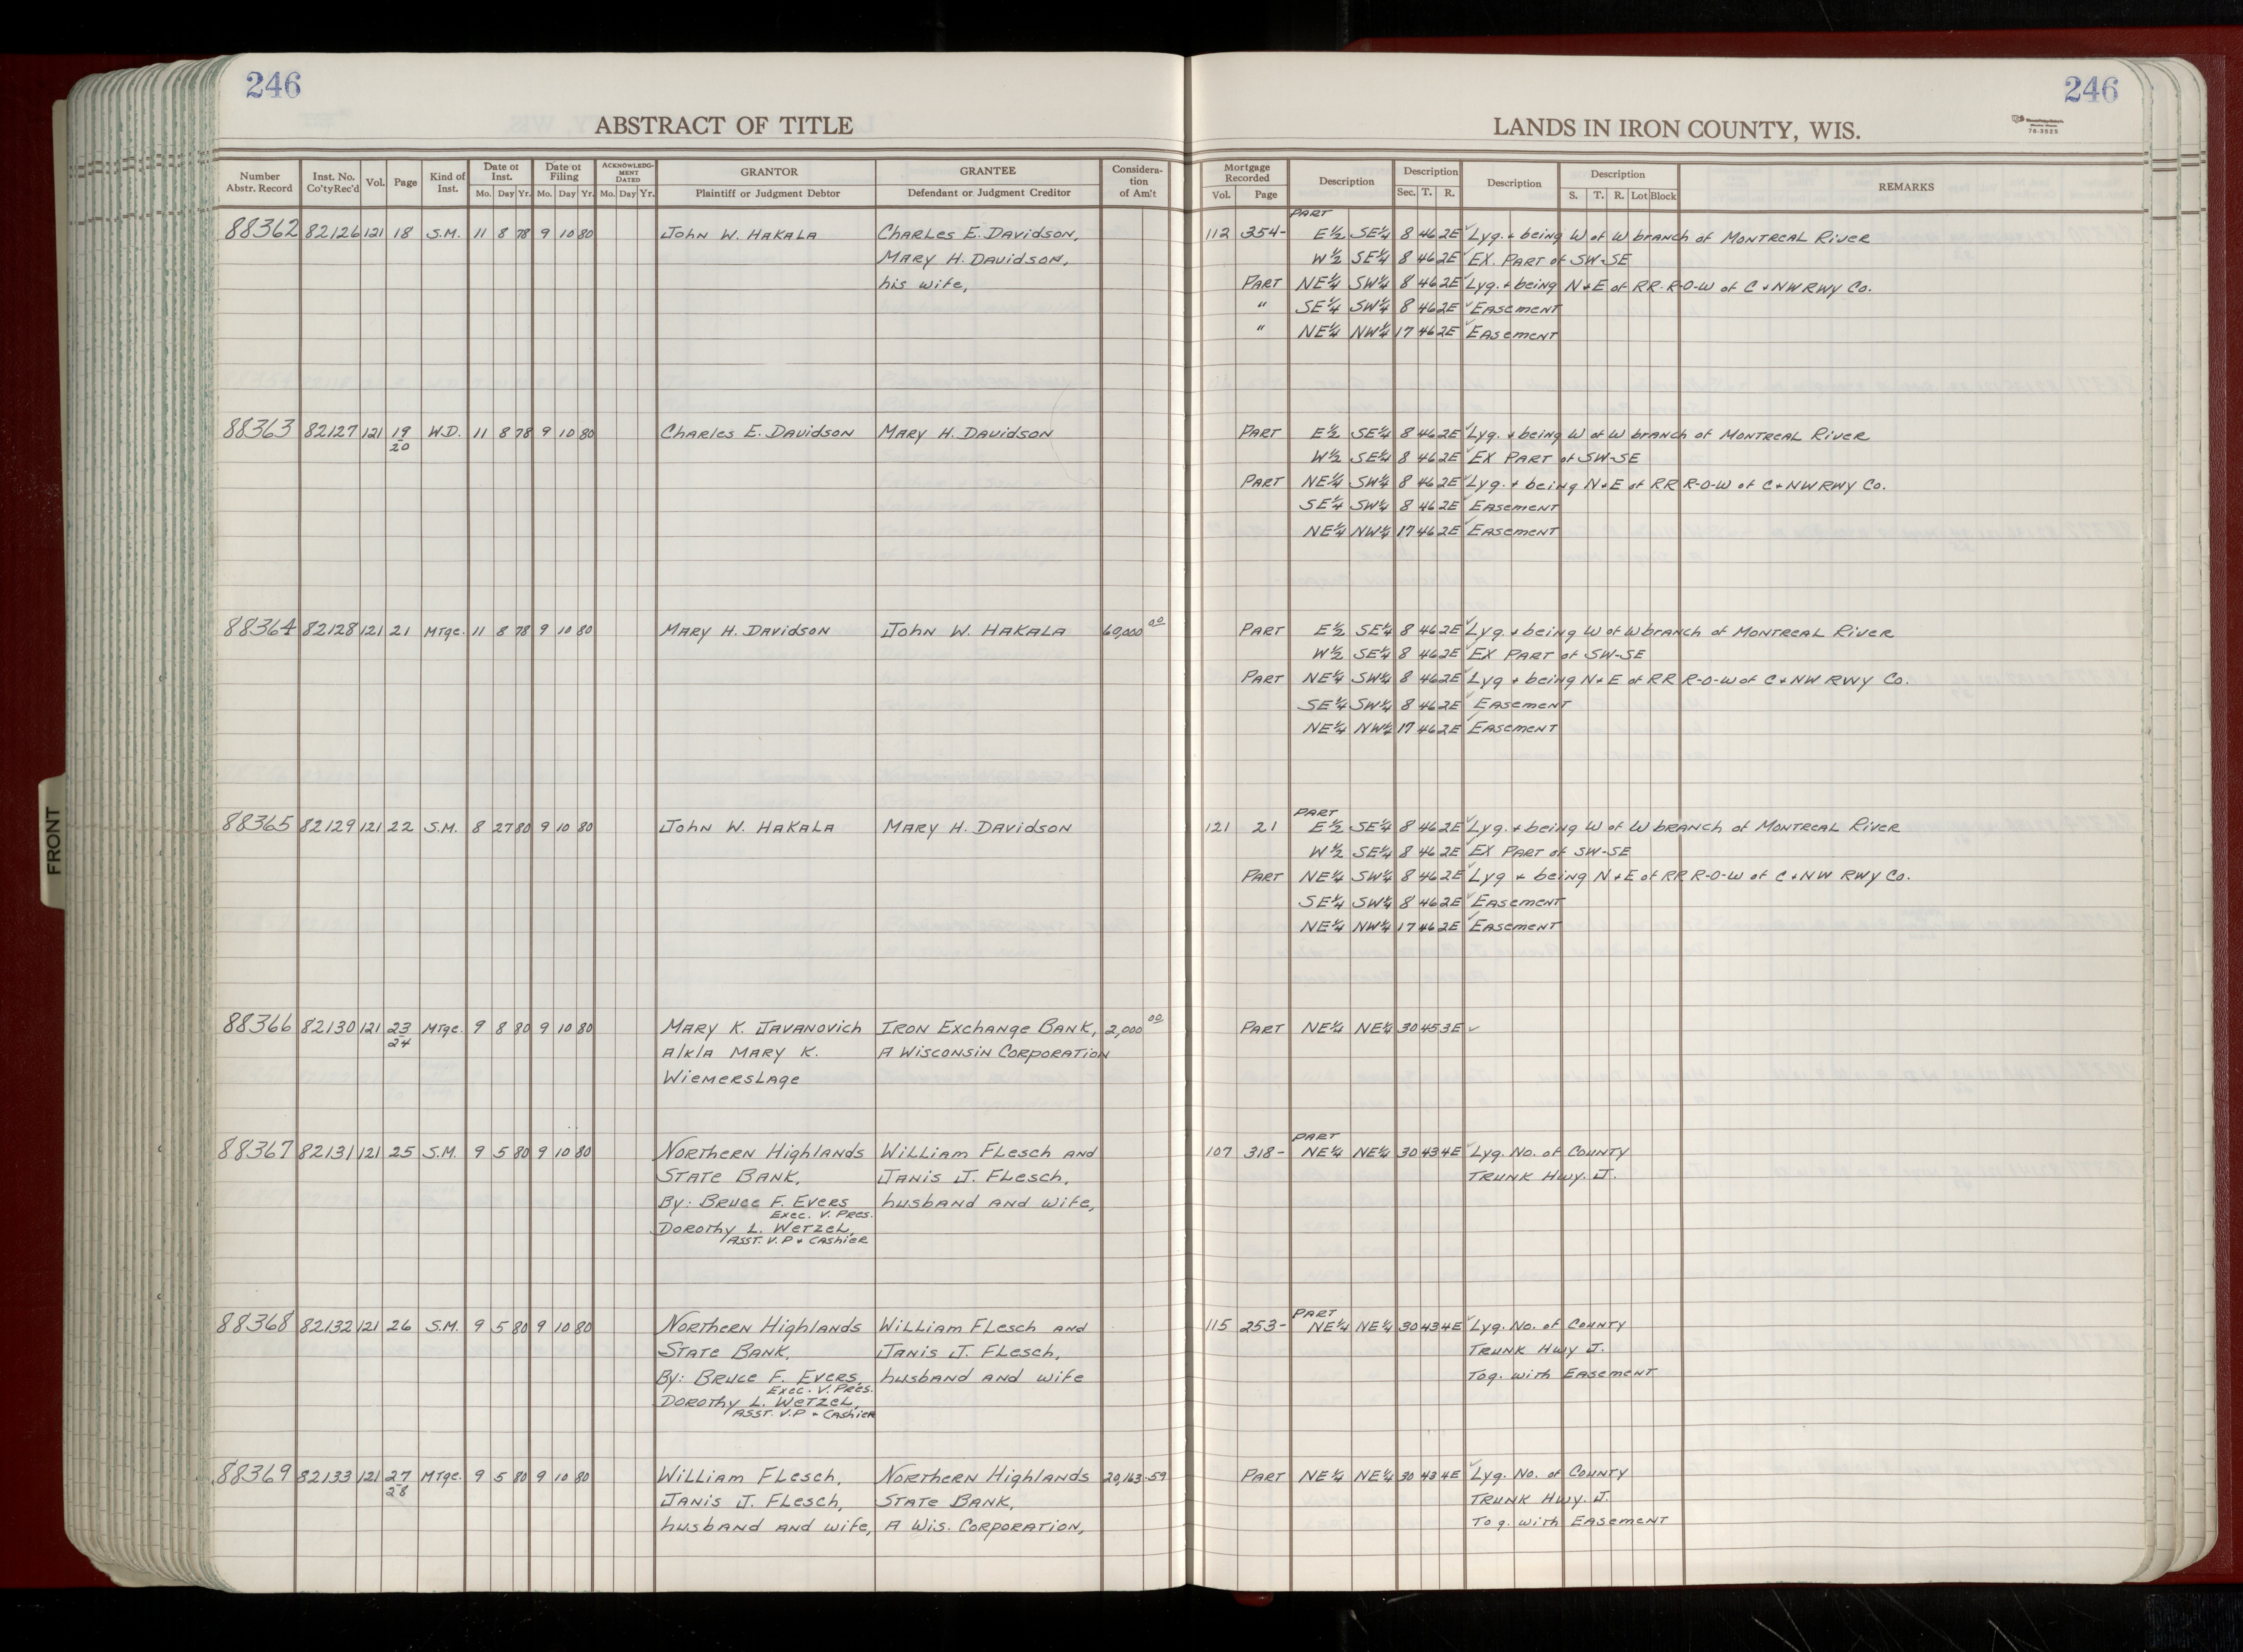 246
246
ABSTRACT OF TITLE
LANDS IN IRON COUNTY, WIS.
78-3525
FRONT
Number Abstr. Record | Inst. No. Co'tyRec'd | Vol. | Page | Kind of Inst. | Date of Inst. Mo. Day Yr. | Date of Filing Mo. Day Yr. | ACKNOWLEDGMENT DATED Mo. Day Yr. | GRANTOR Plaintiff or Judgment Debtor | GRANTEE Defendant or Judgment Creditor | Consideration of Am't | Mortgage Recorded Vol. Page | Description | Description Sec. T. R. | Description | Description S. T. R. Lot Block | REMARKS
PART
88362 82126 121 18 S.M. 11 8 78 9 10 80 John W. Hakala Charles E. Davidson, 112 354- E½ SE¼ 8 46 2E ✓ Lyg. + being W of W branch of Montreal River
Mary H. Davidson, W½ SE¼ 8 46 2E ✓ EX. PART of SW-SE
his wife, PART NE¼ SW¼ 8 46 2E ✓ Lyg. + being N+E of RR. R-O-W of C+NW RWY Co.
" SE¼ SW¼ 8 46 2E ✓ Easement
" NE¼ NW¼ 17 46 2E ✓ Easement
88363 82127 121 19 W.D. 11 8 78 9 10 80 Charles E. Davidson Mary H. Davidson PART E½ SE¼ 8 46 2E ✓ Lyg. + being W of W branch of Montreal River
20 W½ SE¼ 8 46 2E ✓ EX PART of SW-SE
PART NE¼ SW¼ 8 46 2E ✓ Lyg. + being N+E of RR R-O-W of C+NW RWY Co.
SE¼ SW¼ 8 46 2E ✓ Easement
NE¼ NW¼ 17 46 2E ✓ Easement
88364 82128 121 21 MTge. 11 8 78 9 10 80 Mary H. Davidson John W. Hakala 60,000 00 PART E½ SE¼ 8 46 2E ✓ Lyg. + being W of W branch of Montreal River
W½ SE¼ 8 46 2E ✓ EX PART of SW-SE
PART NE¼ SW¼ 8 46 2E ✓ Lyg + being N+E of RR R-O-W of C+NW RWY Co.
SE¼ SW¼ 8 46 2E ✓ Easement
NE¼ NW¼ 17 46 2E ✓ Easement
PART
88365 82129 121 22 S.M. 8 27 80 9 10 80 John W. Hakala Mary H. Davidson 121 21 E½ SE¼ 8 46 2E ✓ Lyg. + being W of W branch of Montreal River
W½ SE¼ 8 46 2E ✓ EX PART of SW-SE
PART NE¼ SW¼ 8 46 2E ✓ Lyg + being N+E of RR R-O-W of C+NW RWY Co.
SE¼ SW¼ 8 46 2E ✓ Easement
NE¼ NW¼ 17 46 2E ✓ Easement
88366 82130 121 23 MTge. 9 8 80 9 10 80 Mary K. Javanovich Iron Exchange Bank, 2,000 00 PART NE¼ NE¼ 30 45 3E ✓
24 A/K/A Mary K. A Wisconsin Corporation
Wiemerslage
PART
88367 82131 121 25 S.M. 9 5 80 9 10 80 Northern Highlands William Flesch and 107 318- NE¼ NE¼ 30 43 4E ✓ Lyg. No. of County
State Bank, Janis J. Flesch, Trunk Hwy. J.
By: Bruce F. Evers husband and wife,
Exec. V. Pres.
Dorothy L. Wetzel,
Asst. V.P + Cashier
PART
88368 82132 121 26 S.M. 9 5 80 9 10 80 Northern Highlands William Flesch and 115 253- NE¼ NE¼ 30 43 4E ✓ Lyg. No. of County
State Bank, Janis J. Flesch, Trunk Hwy J.
By: Bruce F. Evers, husband and wife Tog. with Easement
Exec. V. Pres.
Dorothy L. Wetzel,
Asst. V.P + Cashier
88369 82133 121 27 MTge. 9 5 80 9 10 80 William Flesch, Northern Highlands 20,163.59 PART NE¼ NE¼ 30 43 4E ✓ Lyg. No. of County
28 Janis J. Flesch, State Bank, Trunk Hwy. J.
husband and wife, A Wis. Corporation, Tog. with Easement